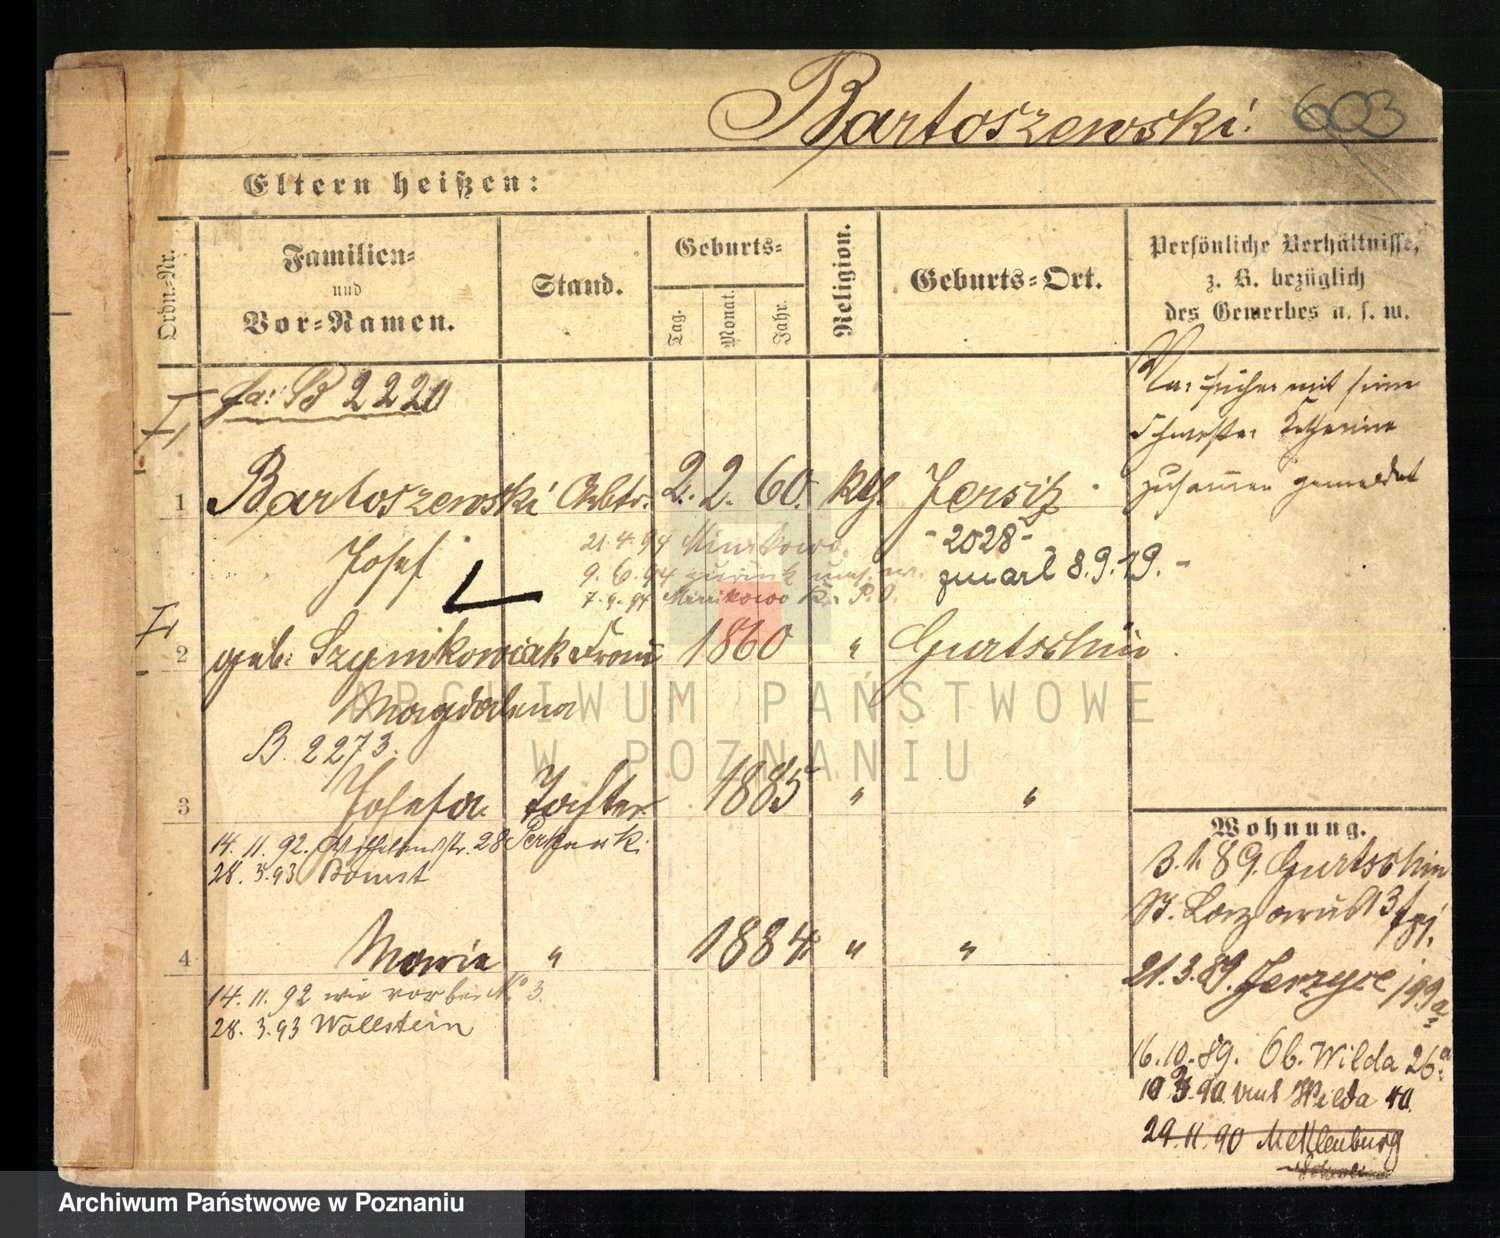 Bartoszewski. 603
Eltern heißen:
Ordn.-Nr.
Familien-
und
Vor-Namen.
Stand.
Geburts-
Tag.
Monat.
Jahr.
Religion.
Geburts-Ort.
Persönliche Verhältnisse,
z. B. bezüglich
des Gewerbes u. s. w.
fa: B 2220
mit seiner
Schwester Katharina
zusammen gemeldet
1 Bartoszewski Arbtr. 2. 2. 60. kth Jersitz
Josef
21.4.94 Minikowo
- 2028 -
9.6.94 zurück
8.9.19. -
7.9.94 Minikowo
2 geb: Szymkowiak Frau 1860 " Gurtschin
Magdalena
B. 2273.
3 Josefa Tochter 1885 " "
14. 11. 92. 28
28. 3. 93 Bomst
4 Marie " 1884 " "
14. 11. 92 wie vor bei No 3.
28. 3. 93 Wollstein
Wohnung.
3. 1. 89. Gurtschin
St. Lazarus 13
21. 3. 89. Jerzyce 199a
16. 10. 89. Ob. Wilda 26a
Wilda 40
29. 11. 90 Mecklenburg
ARCHIWUM PAŃSTWOWE
W POZNANIU
Archiwum Państwowe w Poznaniu